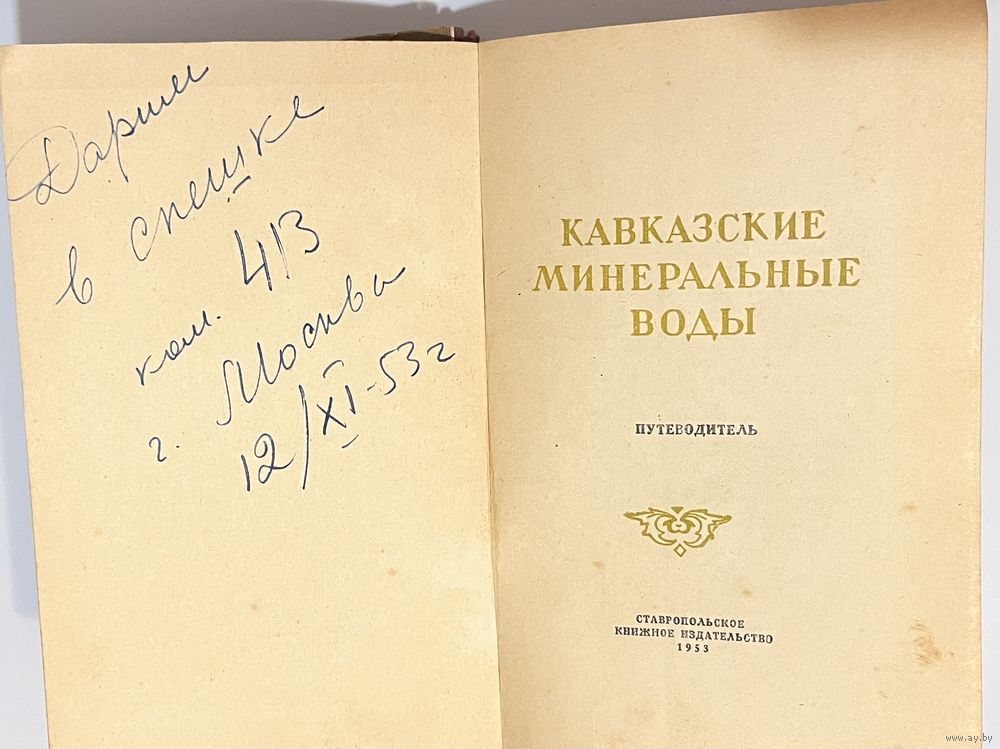 Дарим
в спешке
ком. 413
г. Москва
12/XI-53 г
КАВКАЗСКИЕ
МИНЕРАЛЬНЫЕ
ВОДЫ
ПУТЕВОДИТЕЛЬ
СТАВРОПОЛЬСКОЕ
КНИЖНОЕ ИЗДАТЕЛЬСТВО
1953
www.ay.by